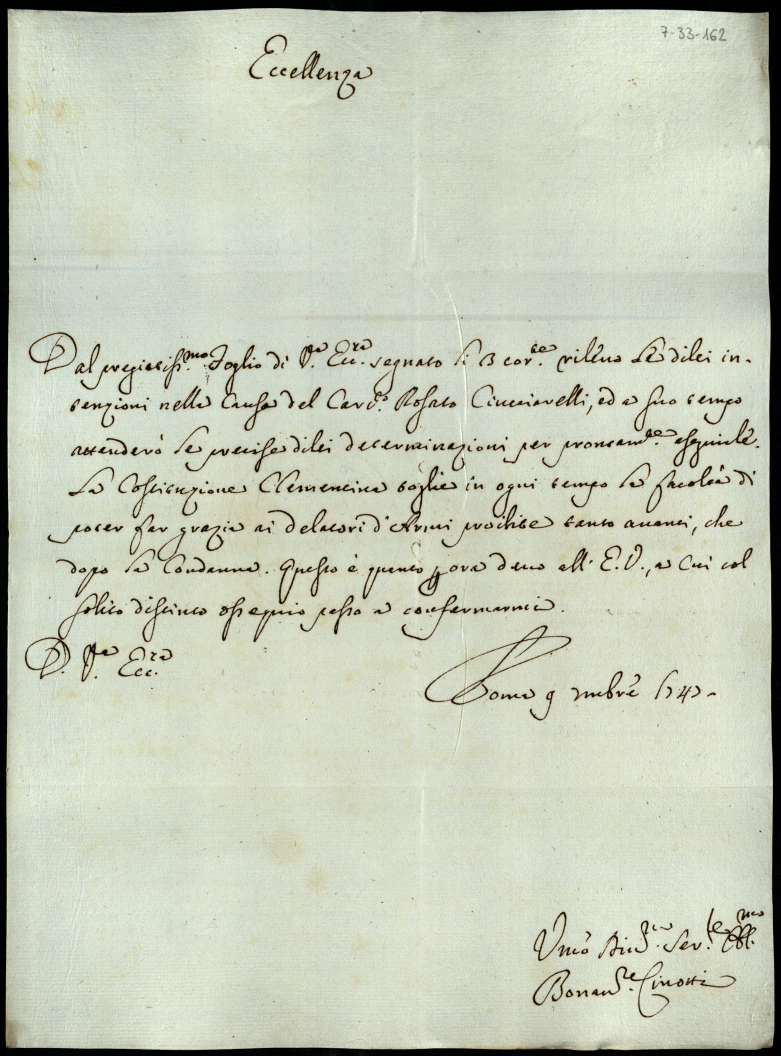 7-33-162
Eccellenza
Dal pregiatiss.mo Foglio di V.a Ecc.za segnato li 3 cor.te rilevo le di lei in-
tenzioni nella Causa del Carc.o Rosato Ciucciarelli, ed a suo tempo
attenderò le precise di lei determinazioni per prontam.te eseguirle.
La Costituzione Clementina toglie in ogni tempo la facoltà di
poter far grazia ai delatori d'Armi proibite tanto avanti, che
dopo la Condanna. Questo è quanto ora devo all' E. V., a Cui col
solito distinto ossequio passo a confermarmi.
D. V.a Ecc.za
Roma 9 9mbre 1747.
Umo Serv.e Obl.mo
Bonav.re Cinotti